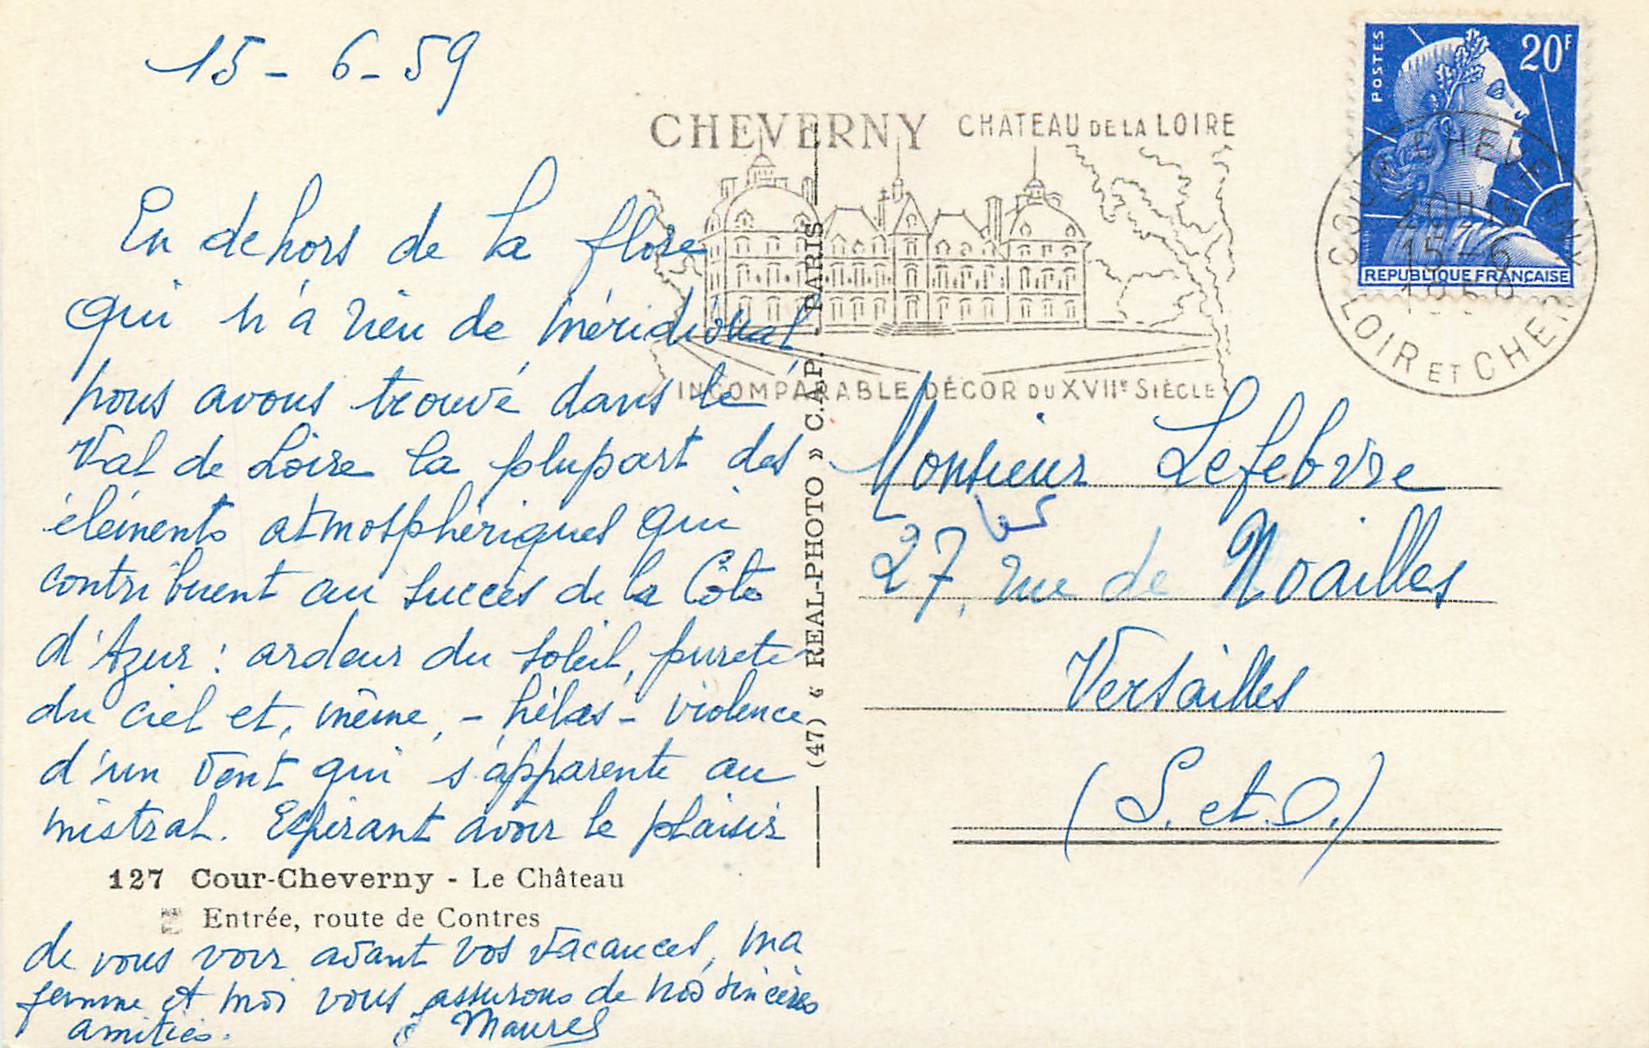 15-6-59
En dehors de la flore
qui n'a rien de méridional
nous avons trouvé dans le
Val de Loire la plupart des
éléments atmosphériques qui
contribuent au succès de la Côte
d'Azur : ardeur du soleil, pureté
du ciel et, même, - hélas - violence
d'un vent qui s'apparente au
mistral. Espérant avoir le plaisir
127 Cour-Cheverny - Le Château
Entrée, route de Contres
de vous voir avant vos vacances, ma
femme et moi vous assurons de nos sincères
amitiés.
(47) « REAL-PHOTO » C.A.P. - PARIS
CHEVERNY CHATEAU DE LA LOIRE
INCOMPARABLE DÉCOR DU XVIIe SIÈCLE
POSTES
20F
REPUBLIQUE FRANÇAISE
COUR-CHEVERNY
15-6
LOIR ET CHER
Monsieur Lefebvre
27, rue de Noailles
Versailles
(S. et. O.)